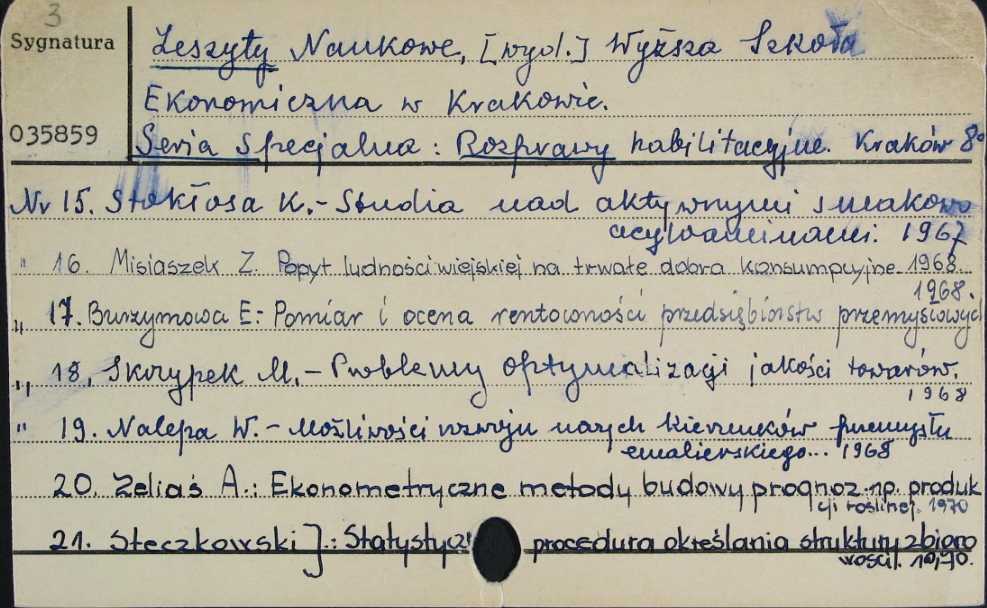 3
Sygnatura
035859
Zeszyty Naukowe, [wyd.] Wyższa Szkoła
Ekonomiczna w Krakowie.
Seria Specjalna: Rozprawy habilitacyjne. Kraków 8°
Nr 15. Stokłosa K.- Studia nad aktywnymi smakowo
acyloaminami. 1967
" 16. Misiaszek Z. Popyt ludności wiejskiej na trwałe dobra konsumpcyjne. 1968.
1968.
" 17. Burzymowa E: Pomiar i ocena rentowności przedsiębiorstw przemysłowych
" 18. Skrzypek M.- Problemy optymalizacji jakości towarów.
1968
" 19. Nalepa W.- Możliwości rozwoju naszych kierunków przemysłu
emalierskiego... 1968
20. Zeliaś A.: Ekonometryczne metody budowy prognoz.np. produk
cji roślinej. 1970
21. Steczkowski J.: Statystycz procedura określania struktury zbioro
wości. 1970.